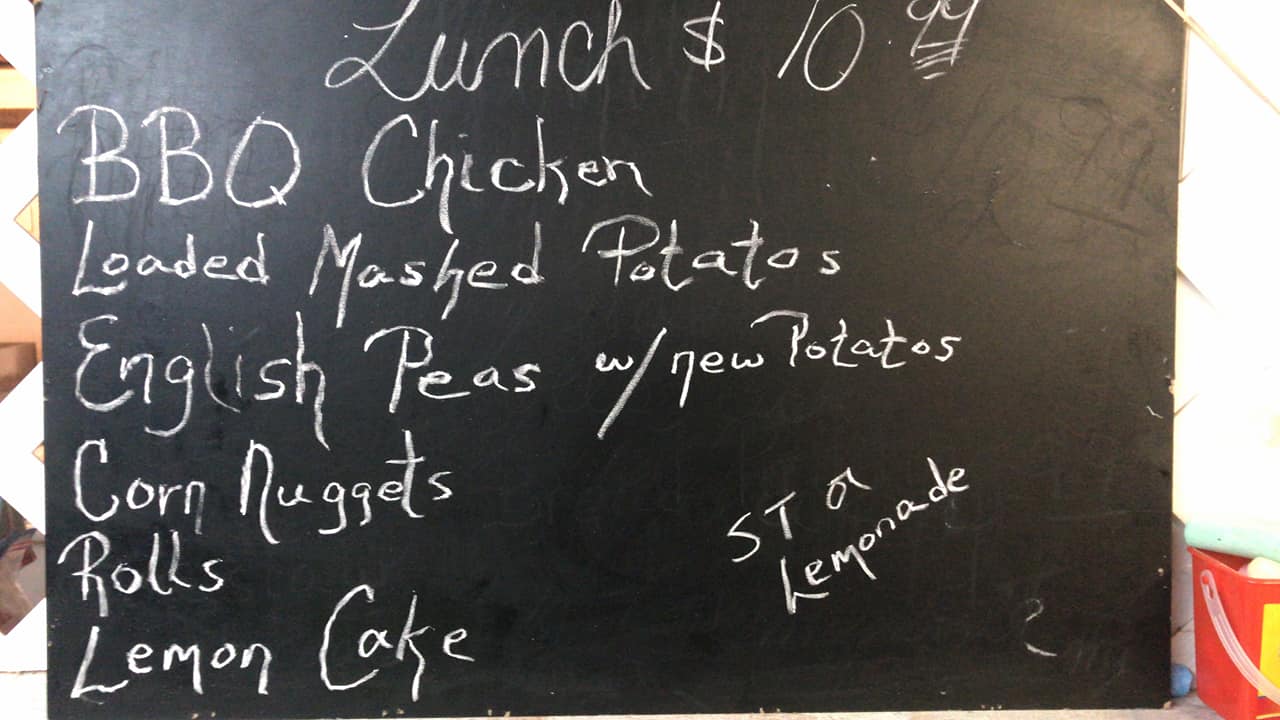 Lunch $ 10.99
BBQ Chicken
Loaded Mashed Potatos
English Peas w/ new Potatos
Corn Nuggets
Rolls
Lemon Cake
ST or
Lemonade